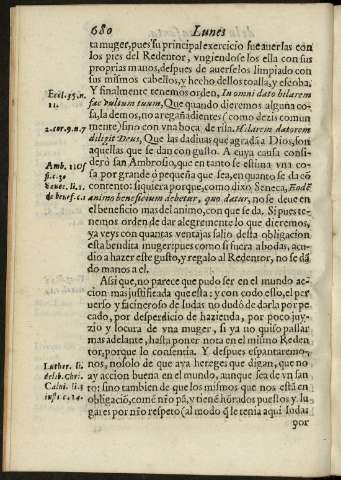 680 Lunes
ta muger, pues su principal exercicio fue auerlas con
los pies del Redentor, vngiendose los ella con sus
proprias manos, despues de auerselos limpiado con
sus mismos cabellos, y hecho dellos toalla, y escoba.
Y finalmente tenemos orden, In omni dato hilarem
fac vultum tuum, Que quando dieremos alguna co-
sa, la demos, no a regañadientes (como dezis comun
mente) sino con vna boca de risa. Hilarem datorem
diligit Deus, Que las dadiuas que agradã a Dios, son
aquellas que se dan con gusto. A cuya causa consi-
derò san Ambrosio, que en tanto se estima vna co-
sa por grande ò pequeña que sea, en quanto se da cõ
contento: siquiera porque, como dixo Seneca, Eodẽ
animo beneficium debetur, quo datur, no se deue en
el beneficio mas del animo, con que se da. Si pues te-
nemos orden de dar alegremente lo que dieremos,
ya veys con quantas ventajas salio desta obligacion
esta bendita muger: pues como si fuera a bodas, acu-
dio a hazer este gusto, y regalo al Redentor, no se dã
do manos a el.
Assi que, no parece que pudo ser en el mundo ac-
cion mas justificada que esta; y con todo esso, el per
uerso y facineroso de Iudas no dudò de darla por pe
cado, por desperdicio de hazienda, por poco juy-
zio y locura de vna muger, si ya no quiso passar
mas adelante, hasta poner nota en el mismo Reden
tor, porque lo consentia. Y despues espantaremo-
nos, no solo de que aya hereges que digan, que no
ay accion buena en el mundo, aunque sea de vn san
to: sino tambien de que los mismos que nos està en
obligaciõ, comẽ nr̃o pã, y tienẽ hõrados puestos y lu
gares por nr̃o respeto (al modo q̃ le tenia aqui Iudas
por
Eccl. 35. n.
11.
2. cor. 9. n. 7
Amb.
Luther. li.
de lib. Chri.
Calui. li. 3